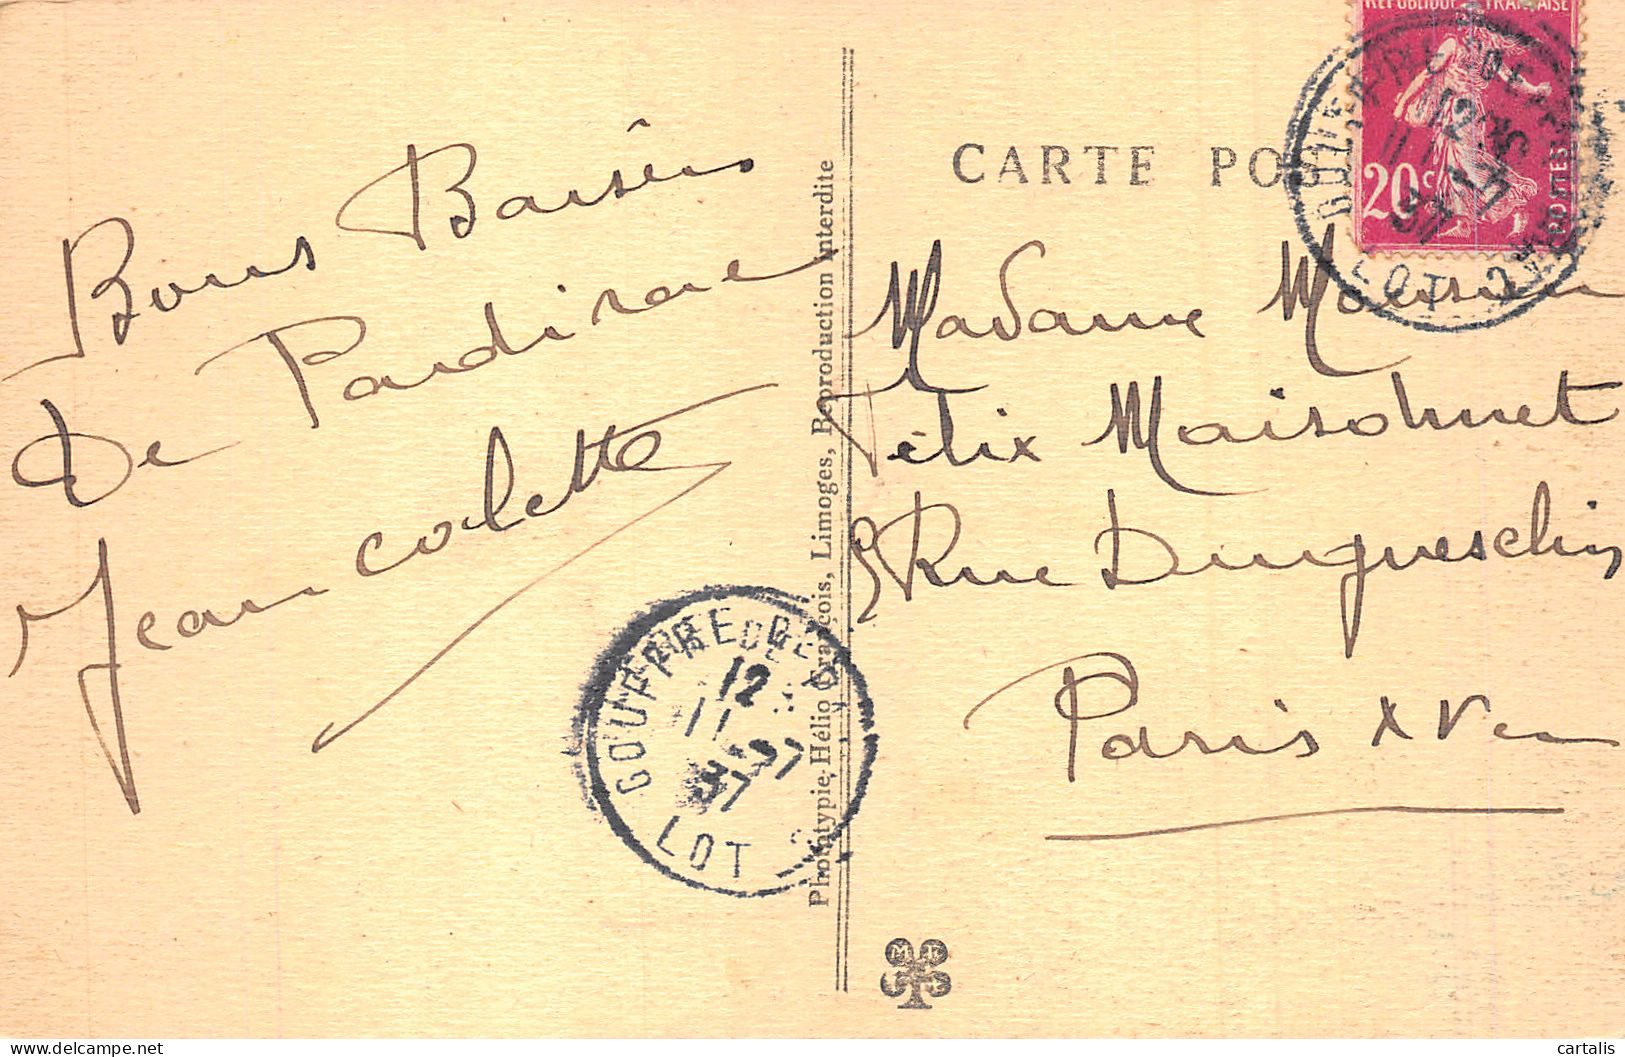 Bons Baisers
De Padirac
Jean colette
Photypie, Hélio Graçois, Limoges, Reproduction interdite
GOUFFRE DE
12
11
37
LOT
CARTE POS
RÉPUBLIQUE FRANÇAISE
20c
POSTES
LOT
Madame Monsieur
Félix Maisonnet
Rue Duguesclin
Paris XVem
delcampe.net
cartalis